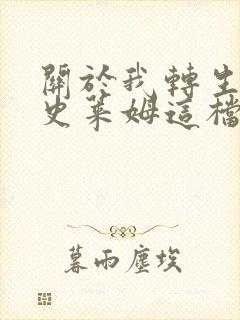 關於我轉生
史萊姆這檔
暮雨塵埃